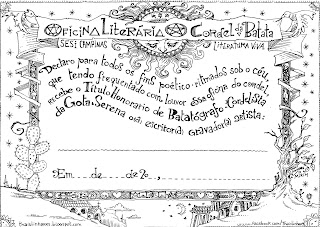 Oficina Literária Cordel da Batata
SESI CAMPINAS LITERATURA VIVA
Declaro para todos os fins poético-ritmados sob o céu,
que tendo frequentado com louvor essa oficina do cordel,
recebe o Título Honorário de Batatógrafo: Cordelista
da Gota-Serena o(a) escritor(a) gravador(a) artista:
Em de de 20 ,